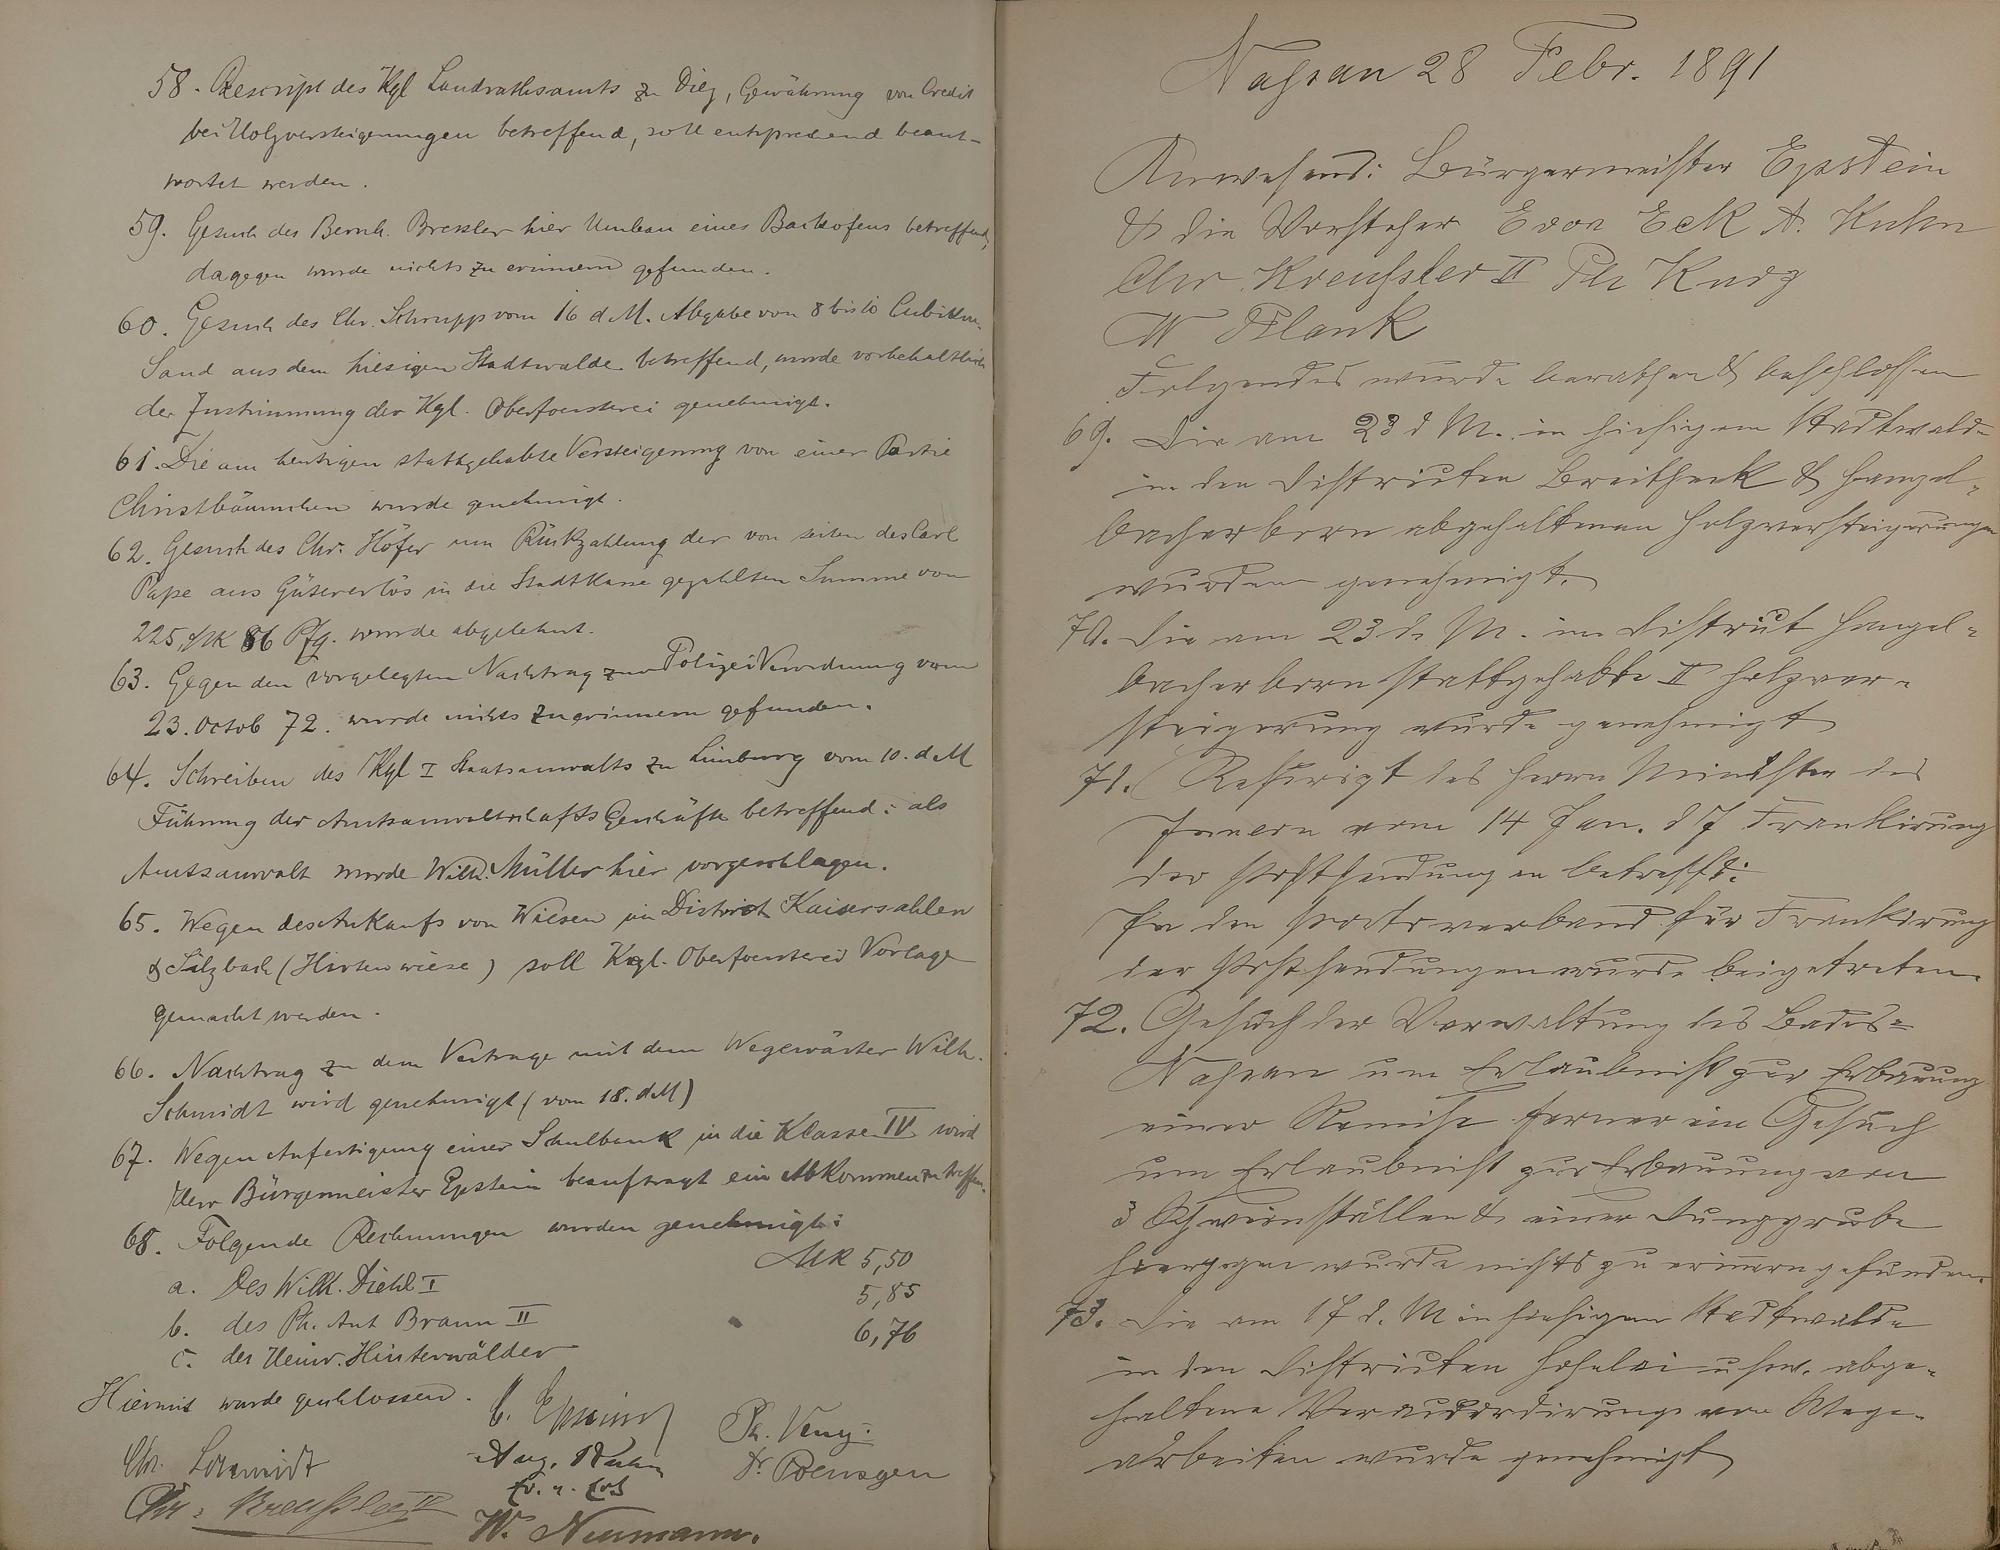 58. Rescript des Kgl Landrathsamts zu Diez, Gewährung von Credit
bei Holzversteigerungen betreffend, soll entsprechend beant-
wortet werden.
59. Gesuch des Bernh. Bressler hier Umbau eines Backofens betreffend,
dagegen wurde nichts zu erinnern gefunden.
60. Gesuch des Chr. Schrupp vom 16 d M. Abgabe von 8 bis 10 Cubikm.
Sand aus dem hiesigen Stadtwalde betreffend, wurde vorbehaltlich
der Zustimmung der Kgl. Oberfoersterei genehmigt.
61. Die am heutigen stattgehabte Versteigerung von einer Partie
Christbäumchen wurde genehmigt.
62. Gesuch des Chr. Höfer um Rückzahlung der von seiten des Carl
Pape aus Gütererlös in die Stadtkasse gezahlten Summe von
225, Mk 86 Pfg. wurde abgelehnt.
63. Gegen den vorgelegten Nachtrag zur Polizei Verordnung vom
23. Octob 72. wurde nichts zu erinnern gefunden.
64. Schreiben des Kgl I Staatsanwalts zu Limburg vom 10. d M
Führung der Amtsanwaltschafts Geschäfte betreffend: als
Amtsanwalt wurde Wilh. Müller hier vorgeschlagen.
65. Wegen des Ankaufs von Wiesen im District Kaisersahlen
& Sulzbach (Hirtenwiese) soll Kgl. Oberfoersterei Vorlage
gemacht werden.
66. Nachtrag zu dem Vertrage mit dem Wegewärter Wilh.
Schmidt wird genehmigt (vom 18. d M)
67. Wegen Anfertigung einer Schulbank in die Klasse IV wird
Herr Bürgermeister Epstein beauftragt ein Abkommen zu treffen.
68. Folgende Rechnungen wurden genehmigt:
a. Des Wilh. Diehl I Mk 5,50
b. des Ph. Ant Braun II 5,85
c. des Heinr. Hinterwälder 6,76
Hiermit wurde geschlossen.
C. Epstein
Ph. Kurz.
Chr. Schmidt
Aug. Kuhn
Dr. Poensgen
Chr. Kreußler II
W. Neumann.
Nassau 28 Febr. 1891
Anwesend: Bürgermeister Epstein
& die Vorsteher Evon Eck A. Kuhn
Chr. Kreußler II Ph Kurz
W Plank
Folgendes wurde berathen & beschlossen
69. Die am 23 d M. im hiesigem Stadtwalde
in den Districten Breitheck & Hangel-
bacherborn abgehaltenen Holzversteigerungen
wurden genehmigt.
70. Die am 23 d. M. im District Hangel-
bacherborn stattgehabte II Holzver-
steigerung wurde genehmigt
71. Rescript des Herrn Ministers des
Innern vom 14 Jan. d J Frankirung
der Postsendungen betreffd:
In den Portoverband für Frankirung
der Postsendungen wurde beigetreten.
72. Gesuch der Verwaltung des Bades-
Nassau um Erlaubniß zur Erbauung
einer Remise ferner ein Gesuch
um Erlaubniß zur Erbauung von
3 Schweinställen & einer Dunggrube
hiergegen wurde nichts zu erinnern gefunden.
73. Die am 17 d. M im hiesigen Stadtwalde
in den Districten Hohelai u s w. abge-
haltene Verauccordirung von Wege-
arbeiten wurde genehmigt